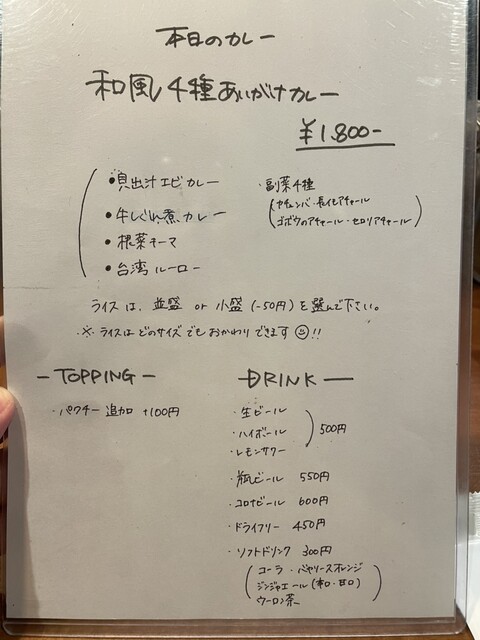 本日のカレー
和風4種あいがけカレー
¥1,800-
・貝出汁エビカレー
・牛しぐれ煮カレー
・根菜キーマ
・台湾ルーロー
・副菜4種
(カチュンバ・長イモアチャール
ゴボウのアチャール・セロリアチャール)
ライスは、並盛 or 小盛(-50円)を選んで下さい。
※ライスはどのサイズでもおかわりできます☺!!
-TOPPING-
・パクチー追加 +100円
DRINK
・生ビール
・ハイボール
・レモンサワー
500円
・瓶ビール 550円
・コロナビール 600円
・ドライフリー 450円
・ソフトドリンク 300円
(コーラ・バヤリースオレンジ
ジンジャエール(辛口・甘口)
ウーロン茶)